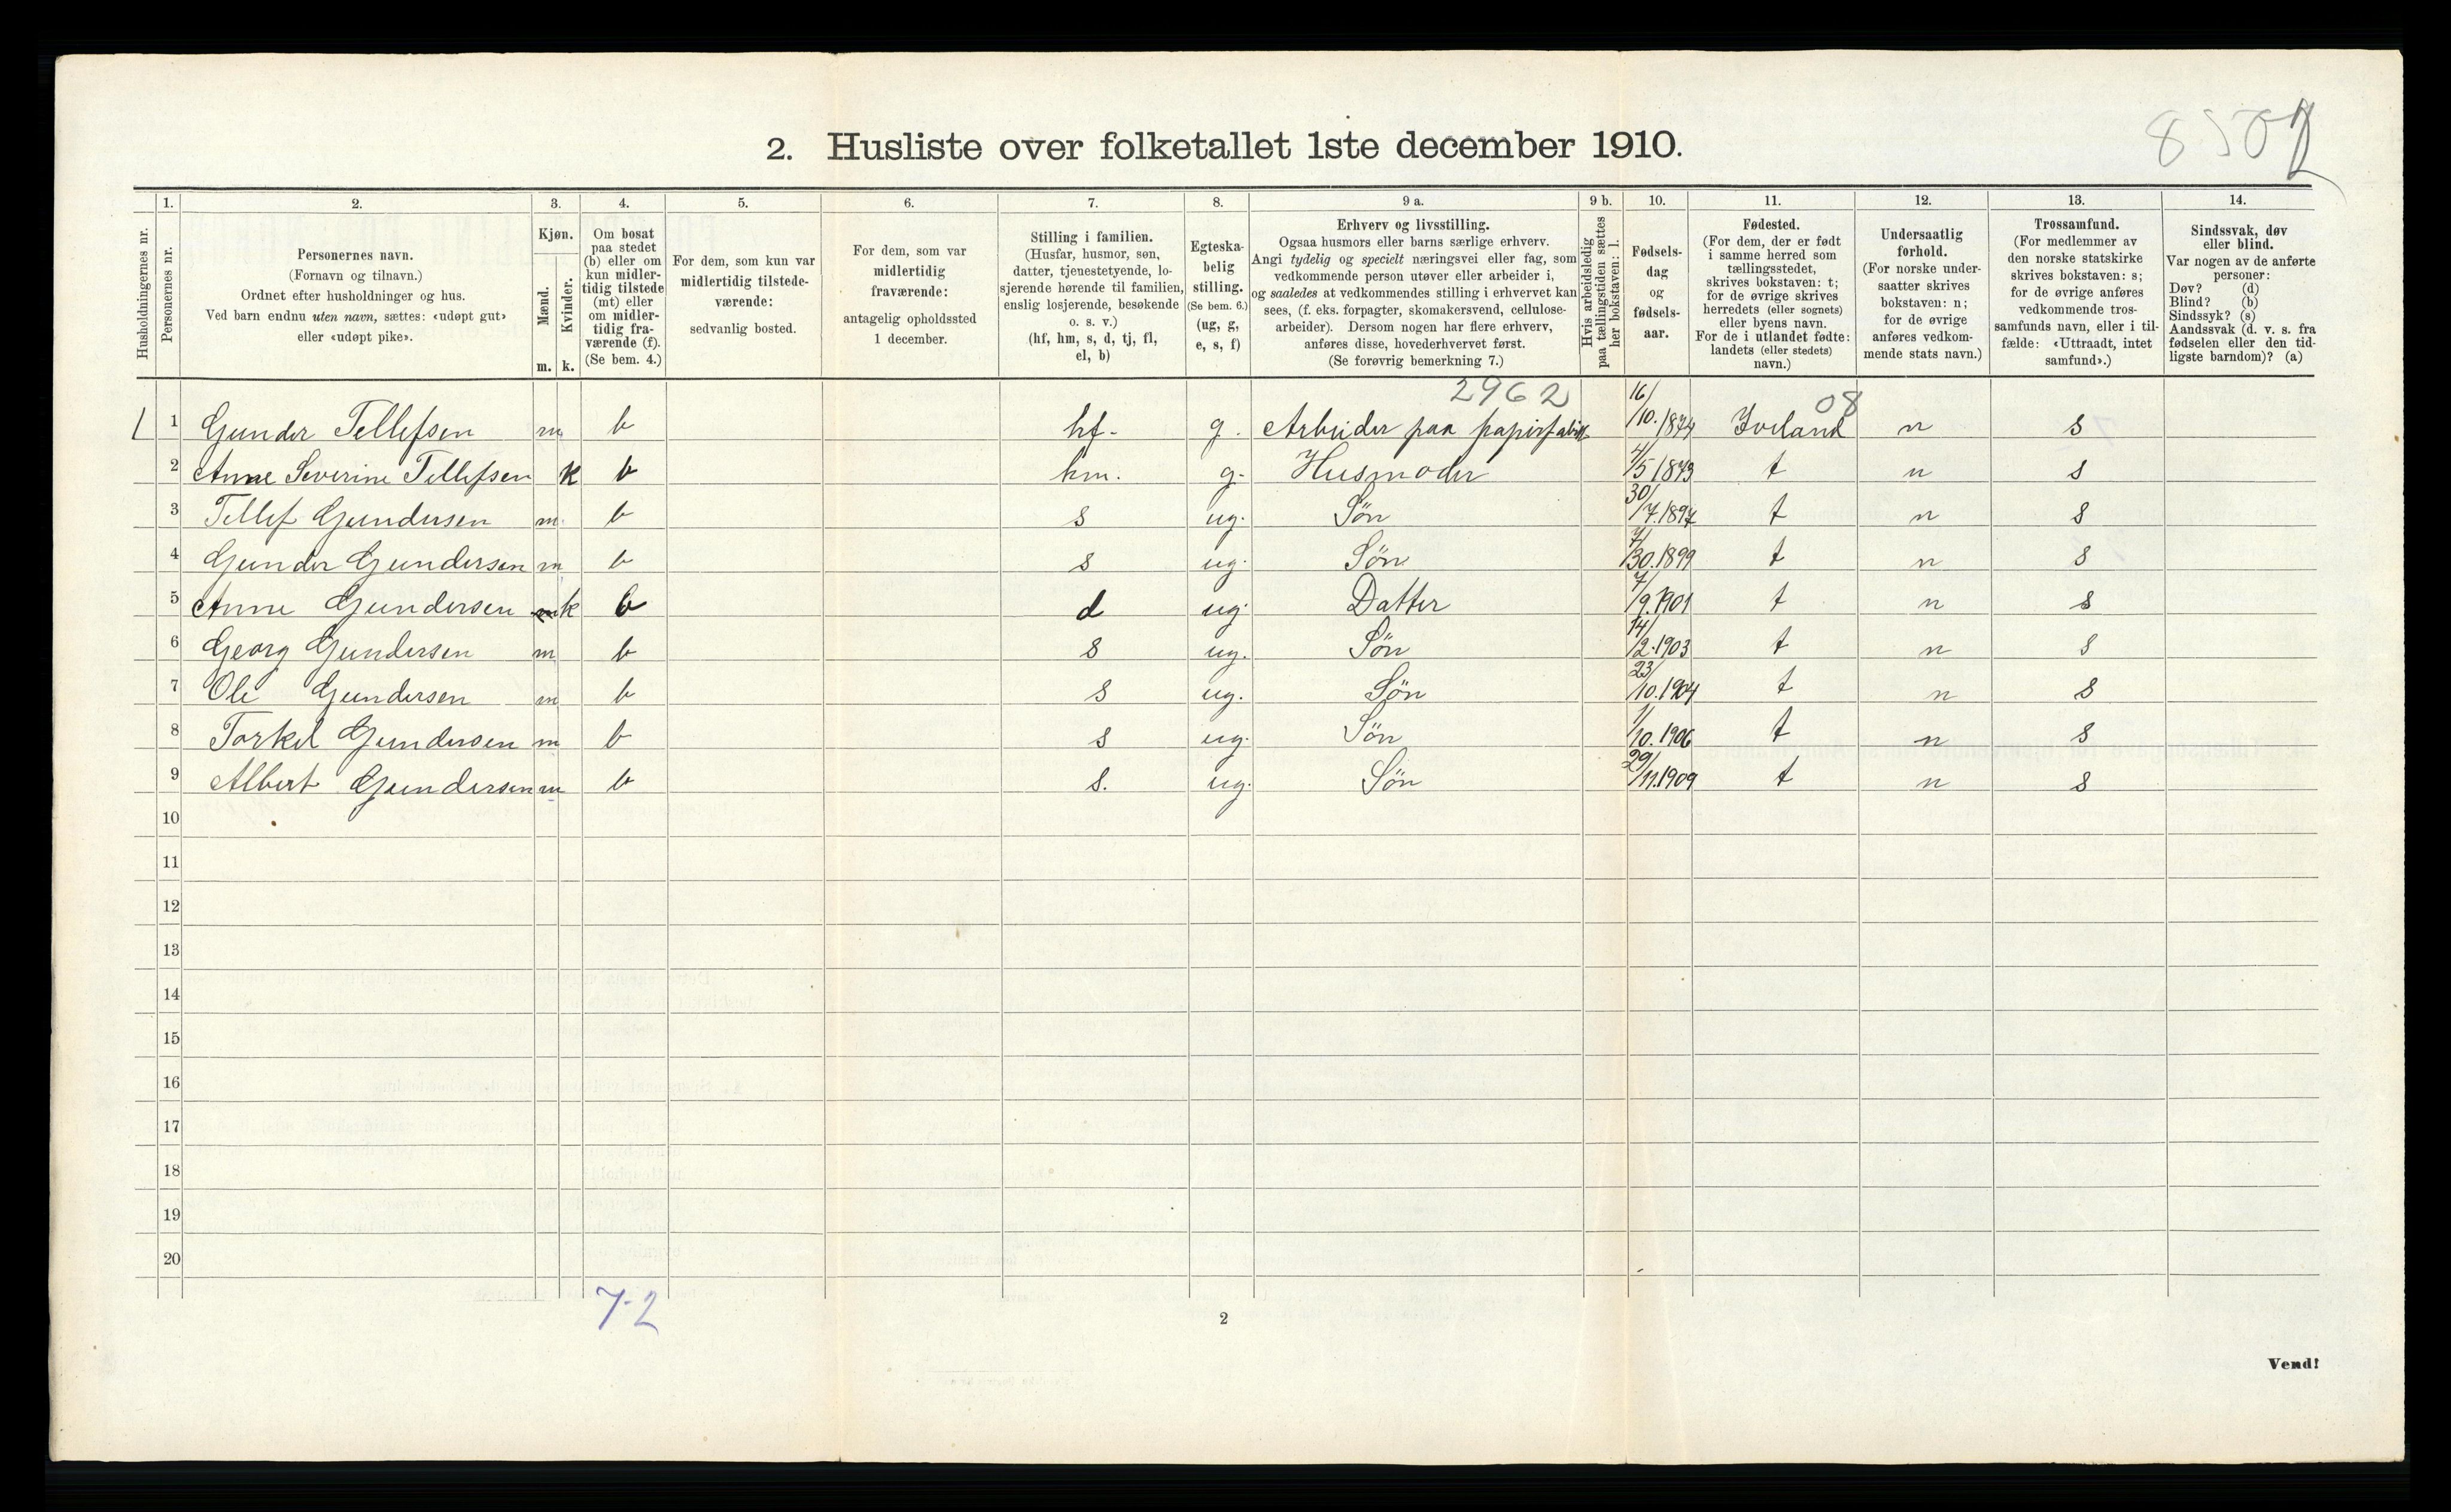 8502
2. Husliste over folketallet 1ste december 1910.
Husholdningernes nr.
1. Personernes nr.
2. Personernes navn. (Fornavn og tilnavn.) Ordnet efter husholdninger og hus. Ved barn endnu uten navn, sættes: «udøpt gut» eller «udøpt pike».
3. Kjøn. Mænd. m. Kvinder. k.
4. Om bosat paa stedet (b) eller om kun midler-tidig tilstede (mt) eller om midler-tidig fra-værende (f). (Se bem. 4.)
5. For dem, som kun var midlertidig tilstede-værende: sedvanlig bosted.
6. For dem, som var midlertidig fraværende: antagelig opholdssted 1 december.
7. Stilling i familien. (Husfar, husmor, søn, datter, tjenestetyende, lo-sjerende hørende til familien, enslig losjerende, besøkende o. s. v.) (hf, hm, s, d, tj, fl, el, b)
8. Egteska-belig stilling. (Se bem. 6.) (ug, g, e, s, f)
9 a. Erhverv og livsstilling. Ogsaa husmors eller barns særlige erhverv. Angi tydelig og specielt næringsvei eller fag, som vedkommende person utøver eller arbeider i, og saaledes at vedkommendes stilling i erhvervet kan sees, (f. eks. forpagter, skomakersvend, cellulose-arbeider). Dersom nogen har flere erhverv, anføres disse, hovederhvervet først. (Se forøvrig bemerkning 7.)
9 b. Hvis arbeidsledig paa tællingstiden sættes her bokstaven: l.
10. Fødsels-dag og fødsels-aar.
11. Fødested. (For dem, der er født i samme herred som tællingsstedet, skrives bokstaven: t; for de øvrige skrives herredets (eller sognets) eller byens navn. For de i utlandet fødte: landets (eller stedets) navn.)
12. Undersaatlig forhold. (For norske under-saatter skrives bokstaven: n; for de øvrige anføres vedkom-mende stats navn.)
13. Trossamfund. (For medlemmer av den norske statskirke skrives bokstaven: s; for de øvrige anføres vedkommende tros-samfunds navn, eller i til-fælde: «Uttraadt, intet samfund».)
14. Sindssvak, døv eller blind. Var nogen av de anførte personer: Døv? (d) Blind? (b) Sindssyk? (s) Aandssvak (d. v. s. fra fødselen eller den tid-ligste barndom)? (a)
2962 08
1 1 Gunder Tellefsen m b hf. g. Arbeider paa papirfabrik 16/10.1874 Iveland n s
2 Anne Severine Tellefsen k b hm. g. Husmoder 4/5 1873 t n s
3 Tellef Gundersen m. b s ug. Søn 30/7.1897 t n s
4 Gunder Gundersen m b s ug. Søn 7/30.1899 t n s
5 Anne Gundersen m k b d ug. Datter 7/9.1901 t n s
6 Georg Gundersen m b s ug. Søn 14/2.1903 t n s
7 Ole Gundersen m b s ug. Søn 23/10.1904 t n s
8 Torkel Gundersen m b s ug. Søn 1/10.1906 t n s
9 Albert Gundersen m b s. ug. Søn 29/11.1909 t n s
10
11
12
13
14
15
16
17
18
19
20
7-2
2
Vend!